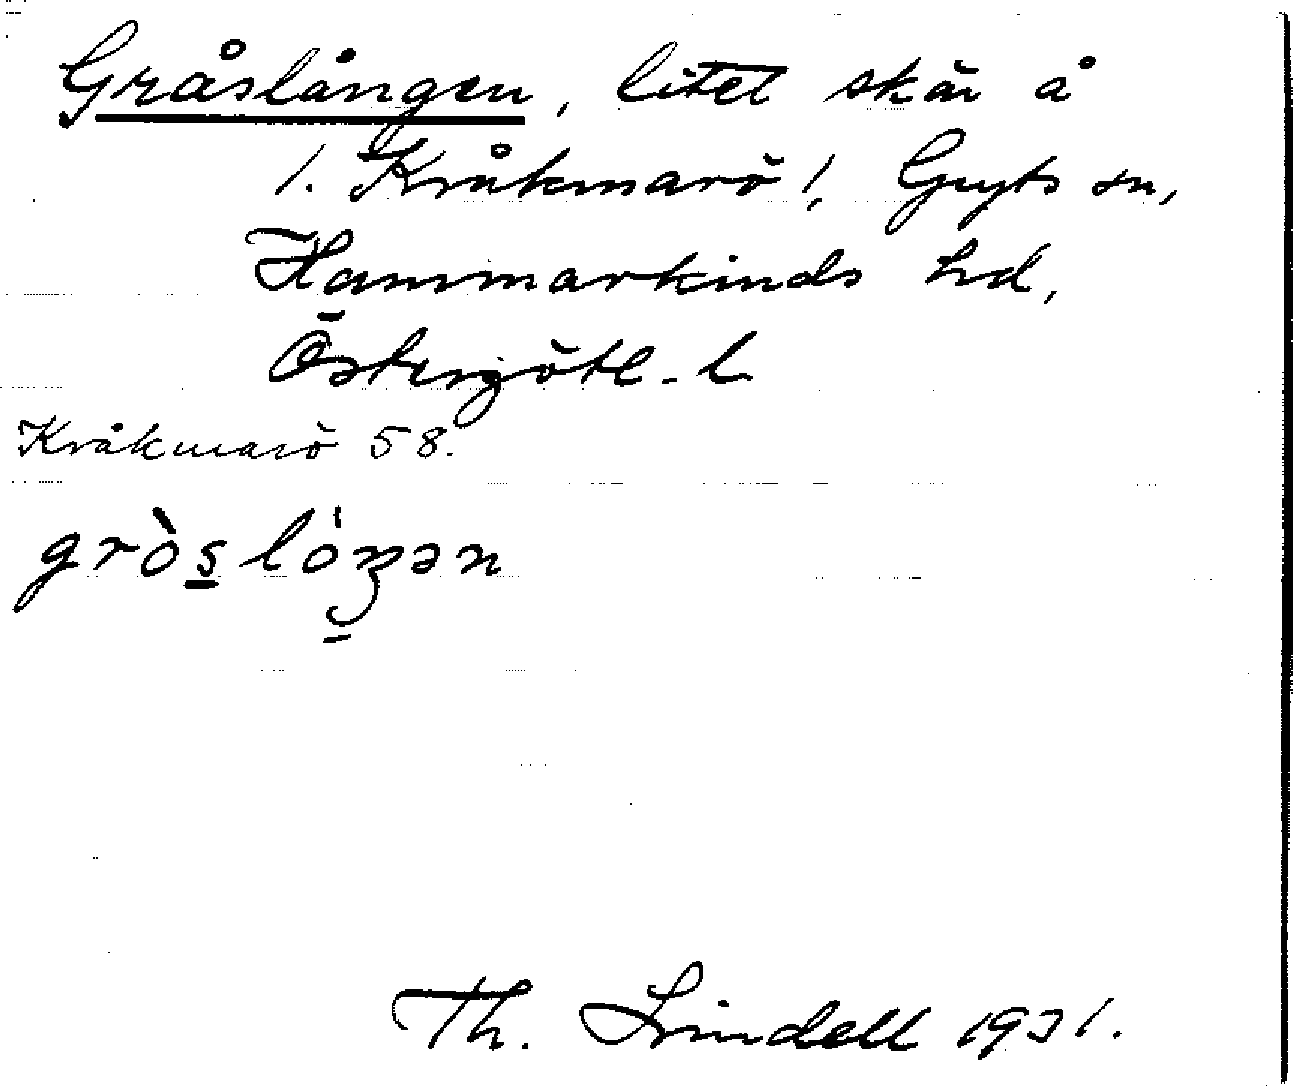 Gråslången, litet skär å
1. Kråkmarö 1, Gryts sn,
Hammarkinds hd,
Östergötl. l
Kråkmarö 58.
gròslóŋən
Th. Lindell 1931.